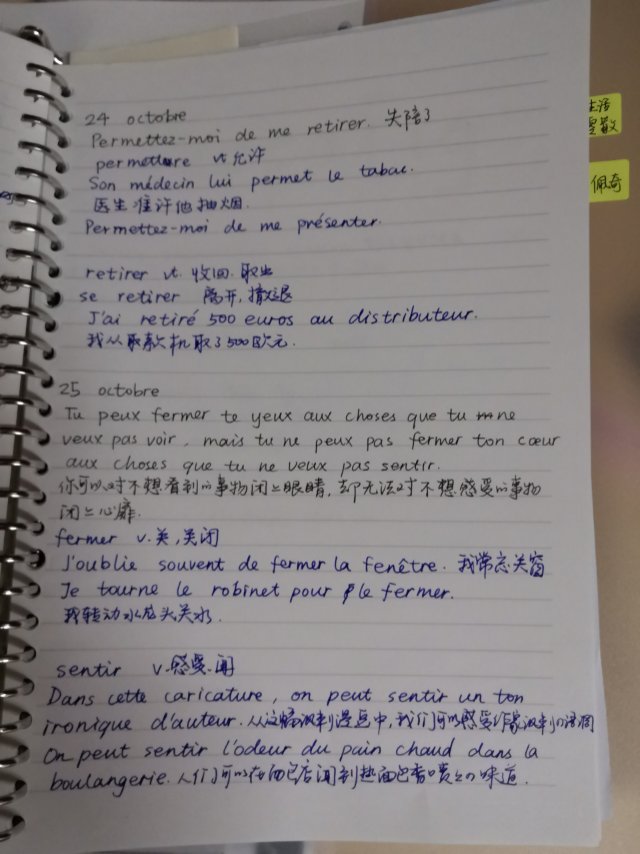 24 octobre
Permettez-moi de me retirer. 失陪了
permettre vt 允许
Son médecin lui permet le tabac.
医生准许他抽烟.
Permettez-moi de me présenter.
retirer vt. 收回.取出
se retirer 离开,撤退
J'ai retiré 500 euros au distributeur.
我从取款机取了500欧元.
25 octobre
Tu peux fermer te yeux aux choses que tu ne
veux pas voir, mais tu ne peux pas fermer ton cœur
aux choses que tu ne veux pas sentir.
你可以对不想看到的事物闭上眼睛,却无法对不想感受的事物
闭上心扉.
fermer v.关,关闭
J'oublie souvent de fermer la fenêtre. 我常忘关窗
Je tourne le robinet pour le fermer.
我转动水龙头关水.
sentir v.感受.闻
Dans cette caricature, on peut sentir un ton
ironique d'auteur. 从这幅讽刺漫画中,我们可以感受作者讽刺的语调
On peut sentir l'odeur du pain chaud dans la
boulangerie. 人们可以在面包店闻到热面包香喷喷的味道.
生活
佩奇